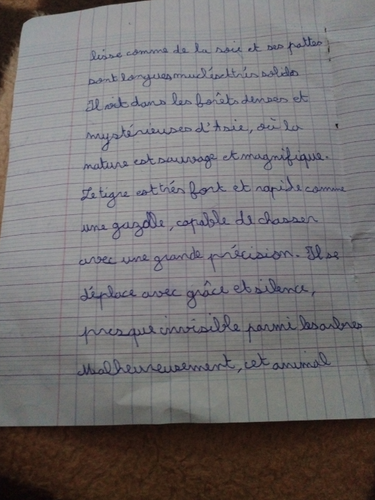 lisse comme de la soie et ses pattes
sont longues muclés et trés solids
Il vit dans les forêts denses et
mystérieuses d'Asie, où la
nature est sauvage et magnifique.
Le tigre est trés fort et rapide comme
une gazelle, capable de chasser
avec une grande précision. Il se
déplace avec grâce et silence,
presque invisible parmi les arbres
Malheureusement, cet animal